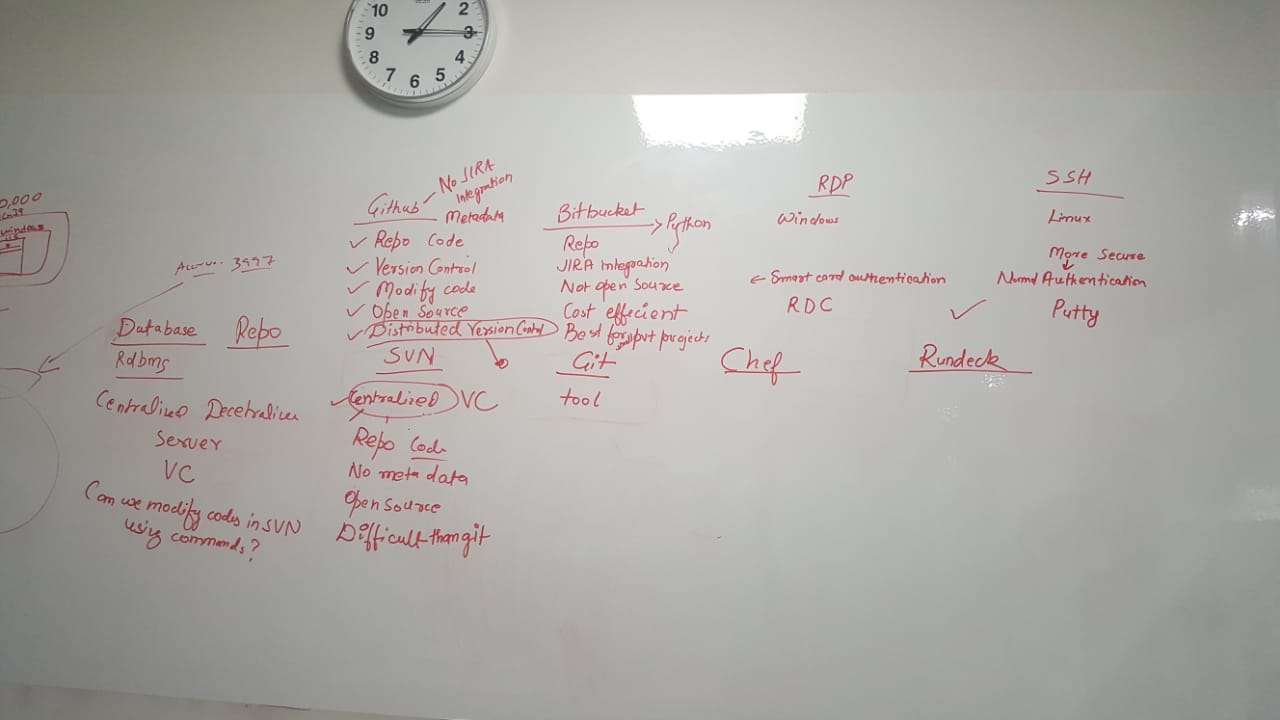 10
2
9
3
8
4
7
6
5
0,000
windows
3997
Database
Repo
Rdbms
Centralized Decetralize
Server
VC
Can we modify codes in SVN
using commands?
No JIRA
Integration
Github
Metadata
Repo Code
Version Control
Modify code
Open Source
Distributed Version Control
SVN
Centralized VC
Repo Code
No meta data
Open Source
Difficult than git
Bitbucket
Python
Repo
JIRA Integration
Not open Source
Cost effecient
Best for pvt projects
Git
tool
RDP
Windows
Smart card authentication
RDC
Chef
SSH
Linux
More Secure
Authentication
Putty
Rundeck